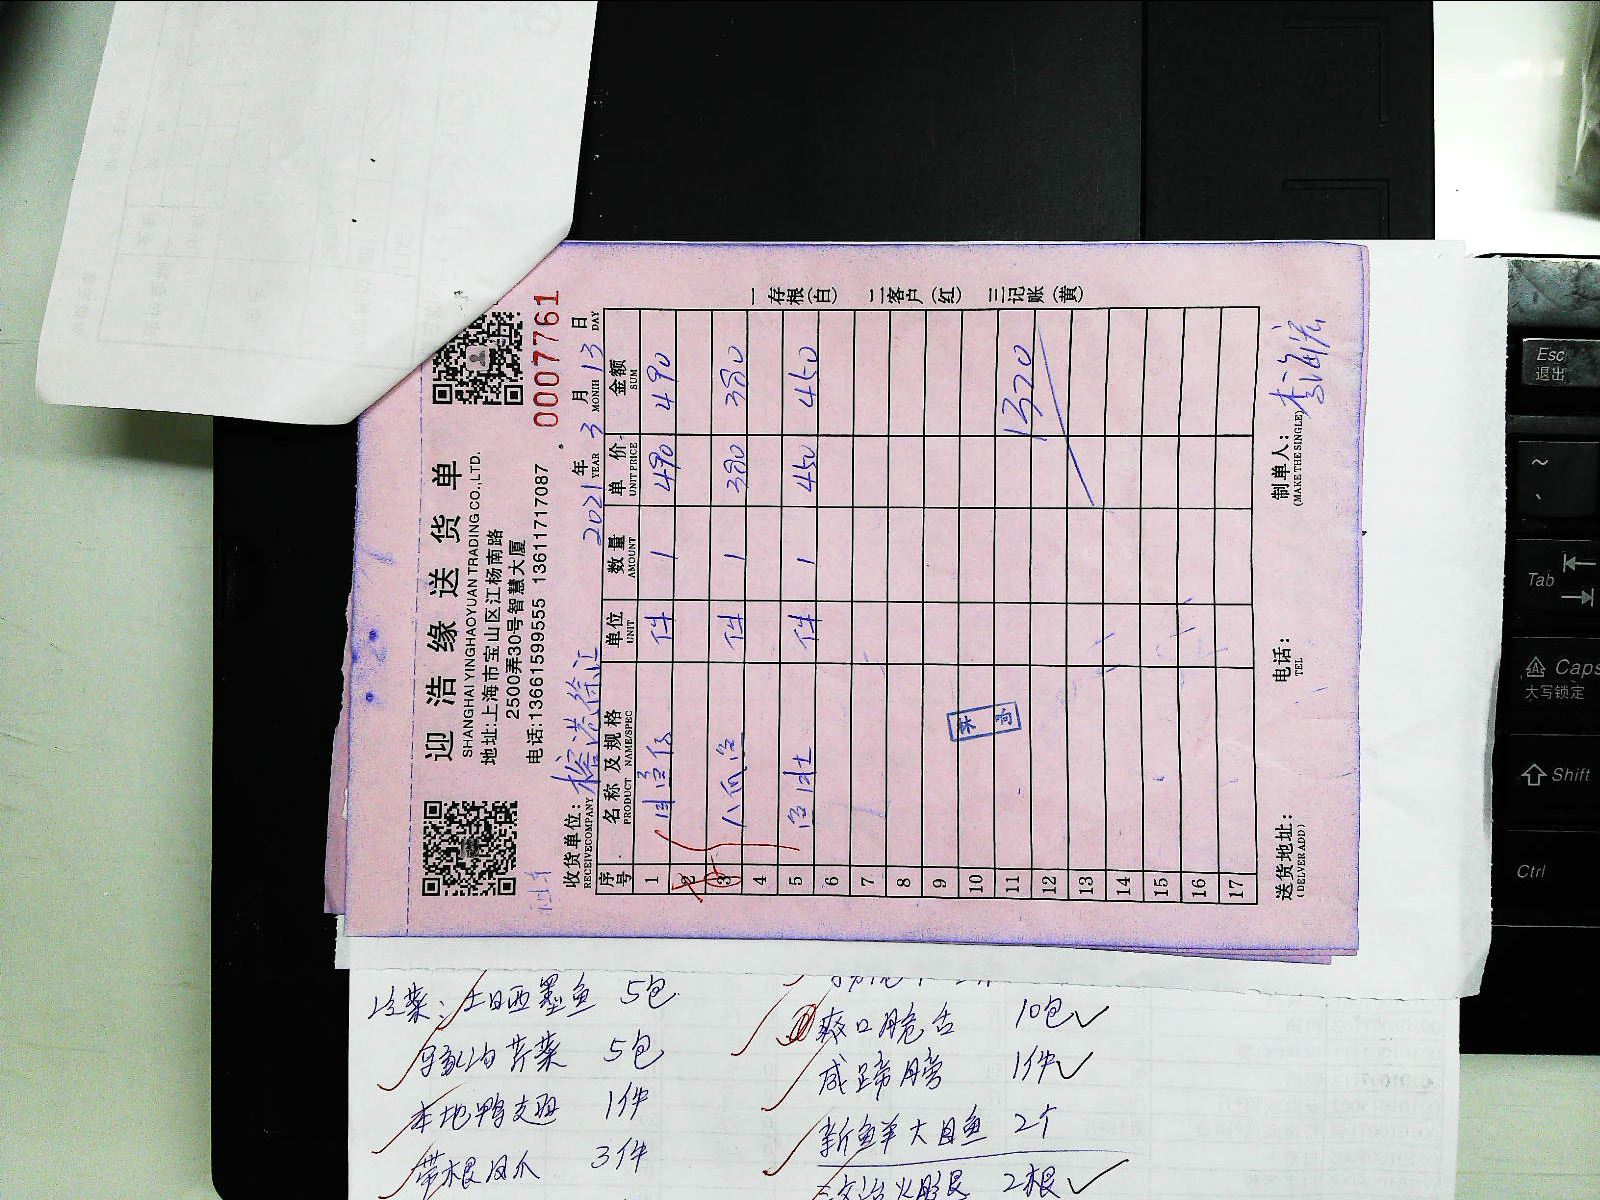 迎浩缘送货单
SHANGHAI YINGHAOYUAN TRADING CO.,LTD.
地址:上海市宝山区江杨南路
2500弄30号智慧大厦
电话:13661599555 13611717087
0007761
收货单位: 榕港徐汇 2021年 3月 13日
RECEIVECOMPANY YEAR MONTH DAY
序号 名称及规格 单位 数量 单价 金额
PRODUCT NAME/SPEC UNIT AMOUNT UNIT PRICE SUM
1 件 1 490 490
2
3 八爪鱼 件 1 380 380
4
5 鱼肚 件 1 450 450
6
7
8
9
10
11 1320
12
13
14
15
16
17
送货地址: 电话: 制单人:
(DELIVER ADD) TEL (MAKE THE SINGLE)
一存根(白) 二客户(红) 三记账(黄)
冷菜: 土日西墨鱼 5包
芹菜 5包
本地鸭 1件
带根凤爪 3件
爽口脆舌 10包
咸蹄膀 1件
新鲜大目鱼 2个
2根
Esc
退出
Tab
Caps
大写锁定
Shift
Ctrl